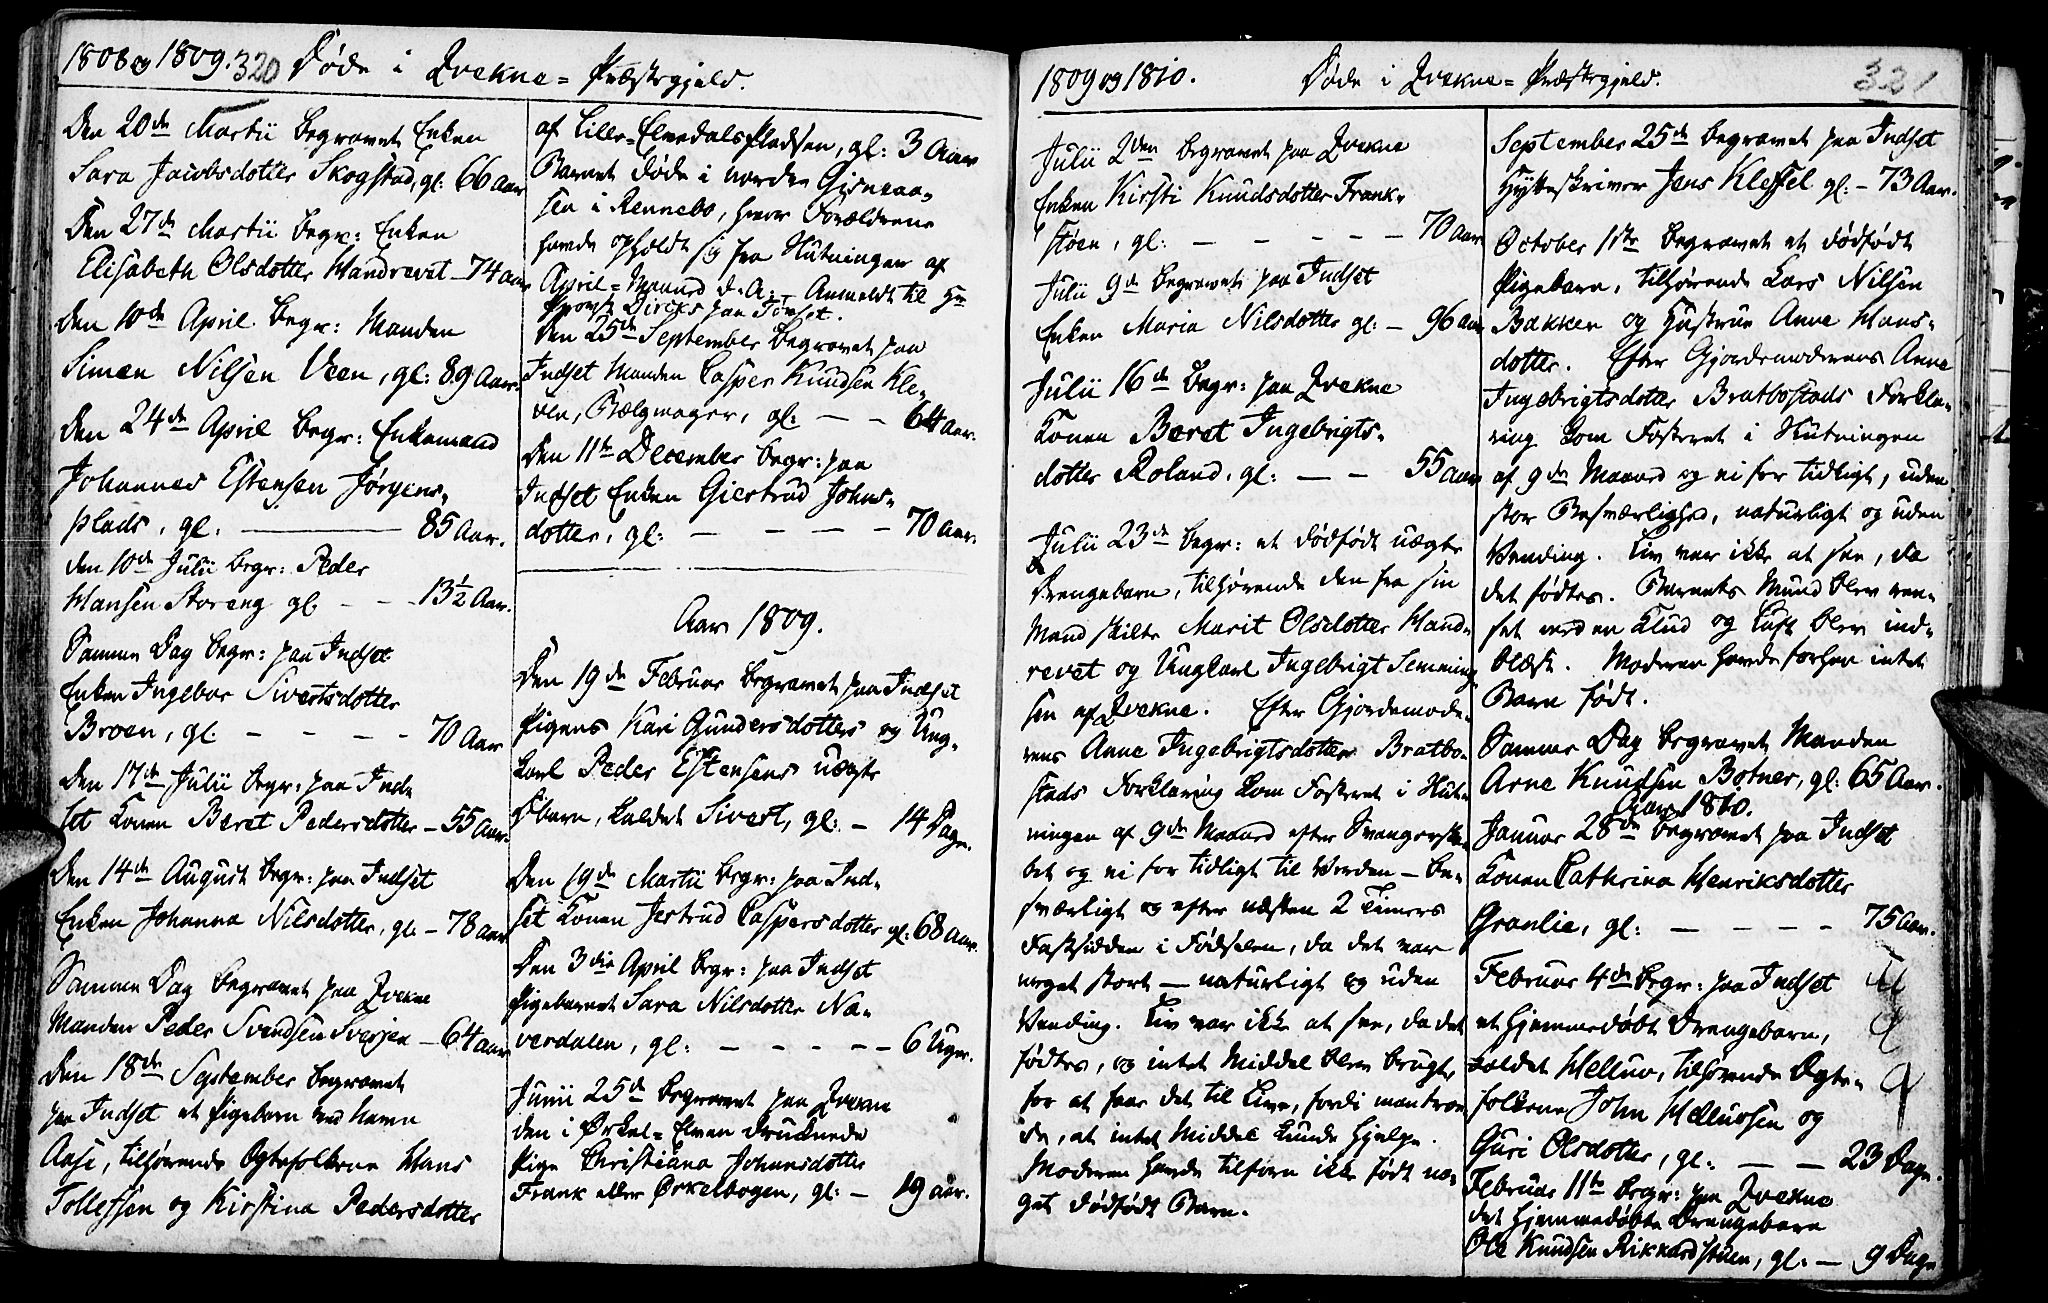 1808 og 1809. 320 Døde i Qvekne= Præstegjeld.
Den 20de Martii begravet Enken
Sara Jacobsdotter Skogstad, gl: 66 Aar
Den 27de Martii begr: Enken
Elisabeth Olsdotter Handrevet – 74 aar
Den 10de April begr: Manden
Simen Nilsen Veen, gl: 89 Aar.
Den 24de April begr: Enkemand
Johannes Estensen Jørgens-
plads, gl: — 85 Aar.
Den 10de Julii begr: Peder
Hansen Storeng gl. – – 13½ Aar.
Samme Dag begr: paa Indset
Enken Ingebor Sivertsdotter
Broen, gl. – – – – 70 Aar
Den 17de Julii begr: paa Ind-
set Konen Beret Pedersdotter – 55 Aar.
Den 14de August begr: paa Indset
Enken Johanna Nilsdotter, gl. – 78 aar
Samme Dag begravet paa Qvekne
Manden Peder Svendsen Sverjen – 64 aar
Den 18de September begravet
paa Indset et Pigebarn ved Navn
Aase, tilhørende Ægtefolkene Hans
Tollefsen og Kirstina Pedersdotter
af Lille=Elvedals Pladsen, gl: 3 Aar
Barnet døde i nordre Gisnaa-
sen i Rennebo, hvor Forældrene
havde opholdt sig fra Slutningen af
April=Maaned d. A. – Anmeldt til Hr
Provst Dircks paa Tønset.
Den 25de September begravet paa
Indset Manden Casper Knudsen Kle-
ven, Bælgmager, gl: – – 64 aar.
Den 11te December begr: paa
Indset Enken Giertrud Johns-
dotter, gl: – – – – 70 aar.
Aar 1809.
Den 19de Februar begravet paa Indset
Pigens Kari Gundersdotters og Ung-
karl Peder Estensens uægte
Dbarn, kaldet Sivert, gl: – 14 Dage.
Den 19de Martii begr: paa Ind-
set Konen Jertrud Caspersdotter gl: 68 Aar.
Den 3die April begr: paa Indset
Pigebarnet Sara Nilsdotter Na-
verdalen, gl: – – – – – 6 Uger.
Junii 25de begravet paa Qvekne
den i Ørkel=Elven druknede
Pige Christiana Johansdotter
Frank eller Ørkelbogen, gl: – 19 aar.
1809 og 1810. Døde i Qvekne=Præstegjeld. 321
Julii 2den begravet paa Qvekne
Enken Kirsti Knudsdotter Frank-
støen, gl: – – – – – 70 Aar
Julii 9de begravet paa Indset
Enken Maria Nilsdotter gl: – 96 aar
Julii 16de begr: paa Qvekne
Konen Beret Ingebrigts-
dotter Roland, gl: – – 55 Aar
Julii 23de begr: et dødfødt uægte
Drengebarn, tilhørende den fra sin
Mand skilte Marit Olsdotter Hand-
revet og Ungkarl Ingebrigt Semming-
sen af Qvekne. Efter Gjordemode-
rens Anne Ingebrigtsdotter Bratbo-
stads Forklaring kom Fosteret i Slut-
ningen af 9de Maaned efter Svangerska-
bet og ei for tidligt til Verden – be-
sværligt og efter næsten 2 Timers
Fastsidden i Fødselen, da det var
meget stort – naturligt og uden
Vending. Liv var ikke at see, da det
fødtes, og intet Middel blev brugt
for at faae det til Live, fordi man troe-
de, at intet Middel kunde hjelpe.
Moderen havde tilforn ikke født no-
get dødfødt Barn.
September 25de begravet paa Indset
Hytteskriver Jens Kleffel gl: – 73 Aar.
October 1ste begravet et dødfødt
Pigebarn, tilhørende Lars Nilsen
Bakken og Hustrue Anne Hans-
dotter. Efter Gjordemoderens Anne
Ingebrigtsdotter Bratbostads Forkla-
ring kom Fosteret i Slutningen
af 9de Maaned og ei for tidligt, uden
stor Besværlighed, naturligt og uden
Vending. Liv var ikke at see, da
det fødtes. Barnets Mund blev ren-
set med en Klud og Luft blev ind-
blæst. Moderen havde forhen intet
Barn født.
Samme Dag begravet Manden
Arne Knudsen Botner, gl: 65 Aar.
Aar 1810.
Januar 28de begravet paa Indset
Konen Cathrina Henriksdotter
Granlie, gl: – – – – 75 Aar.
Februar 4de begr: paa Indset
et hjemmedøbt Drengebarn,
kaldet Helluv, tilhørende Ægte-
folkene John Helluvsen og
Guri Olsdotter, gl: – – 23 Dage.
Februar 11te begr: paa Qvekne
det hjemmedøbte Drengebarn
Ole Knudsen Rikkardstuen, gl: – 9 Dage